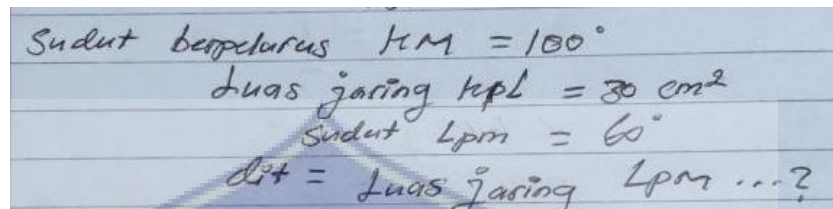 Sudut berpelurus KM = 180°
Luas jaring KPL = 30 cm²
Sudut Lpm = 60°
dit = Luas jaring Lpm ...?